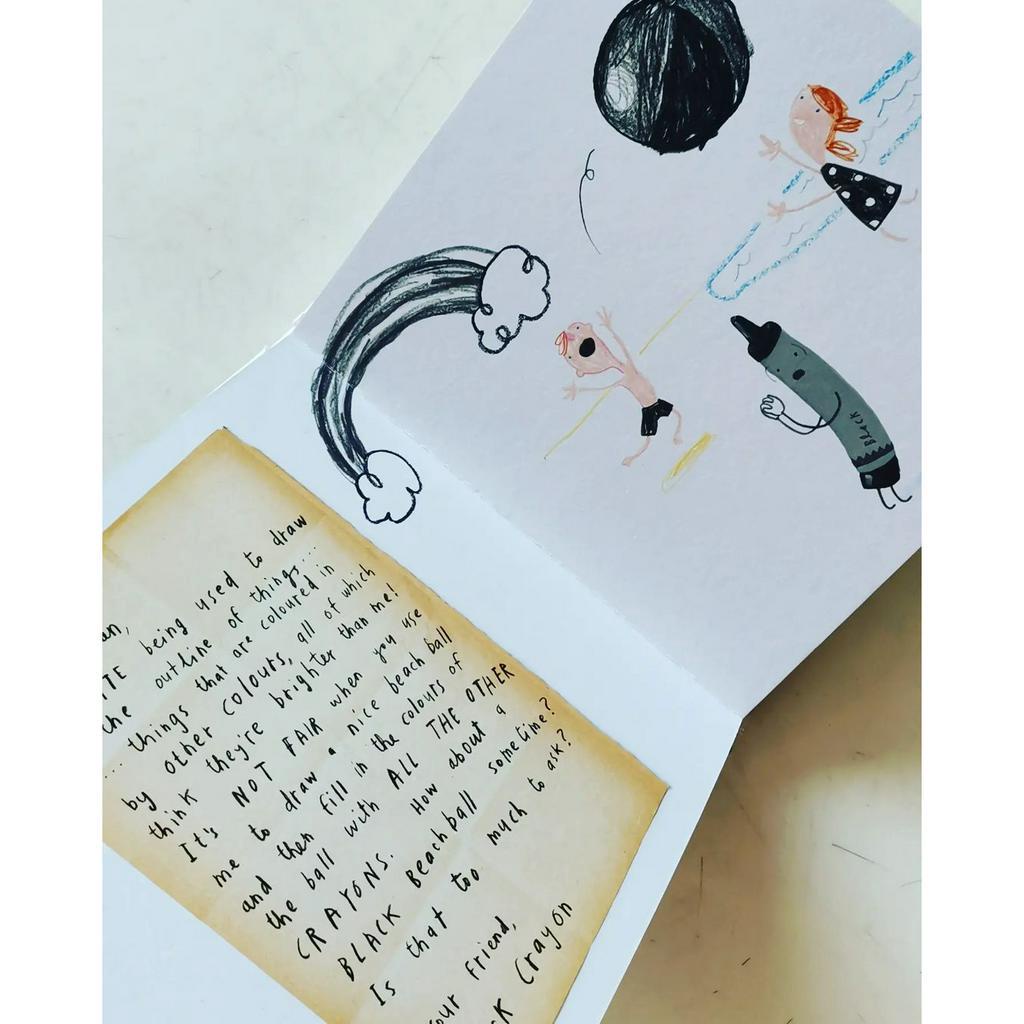 an,
TE being used to draw
the outline of things...
... things that are coloured in
by other colours, all of which
think they're brighter than me!
It's NOT FAIR when you use
me to draw a nice beach ball
and then fill in the colours of
the ball with ALL THE OTHER
CRAYONS. How about a
BLACK beach ball sometime?
Is that too much to ask?
our friend,
K Crayon
BLACK